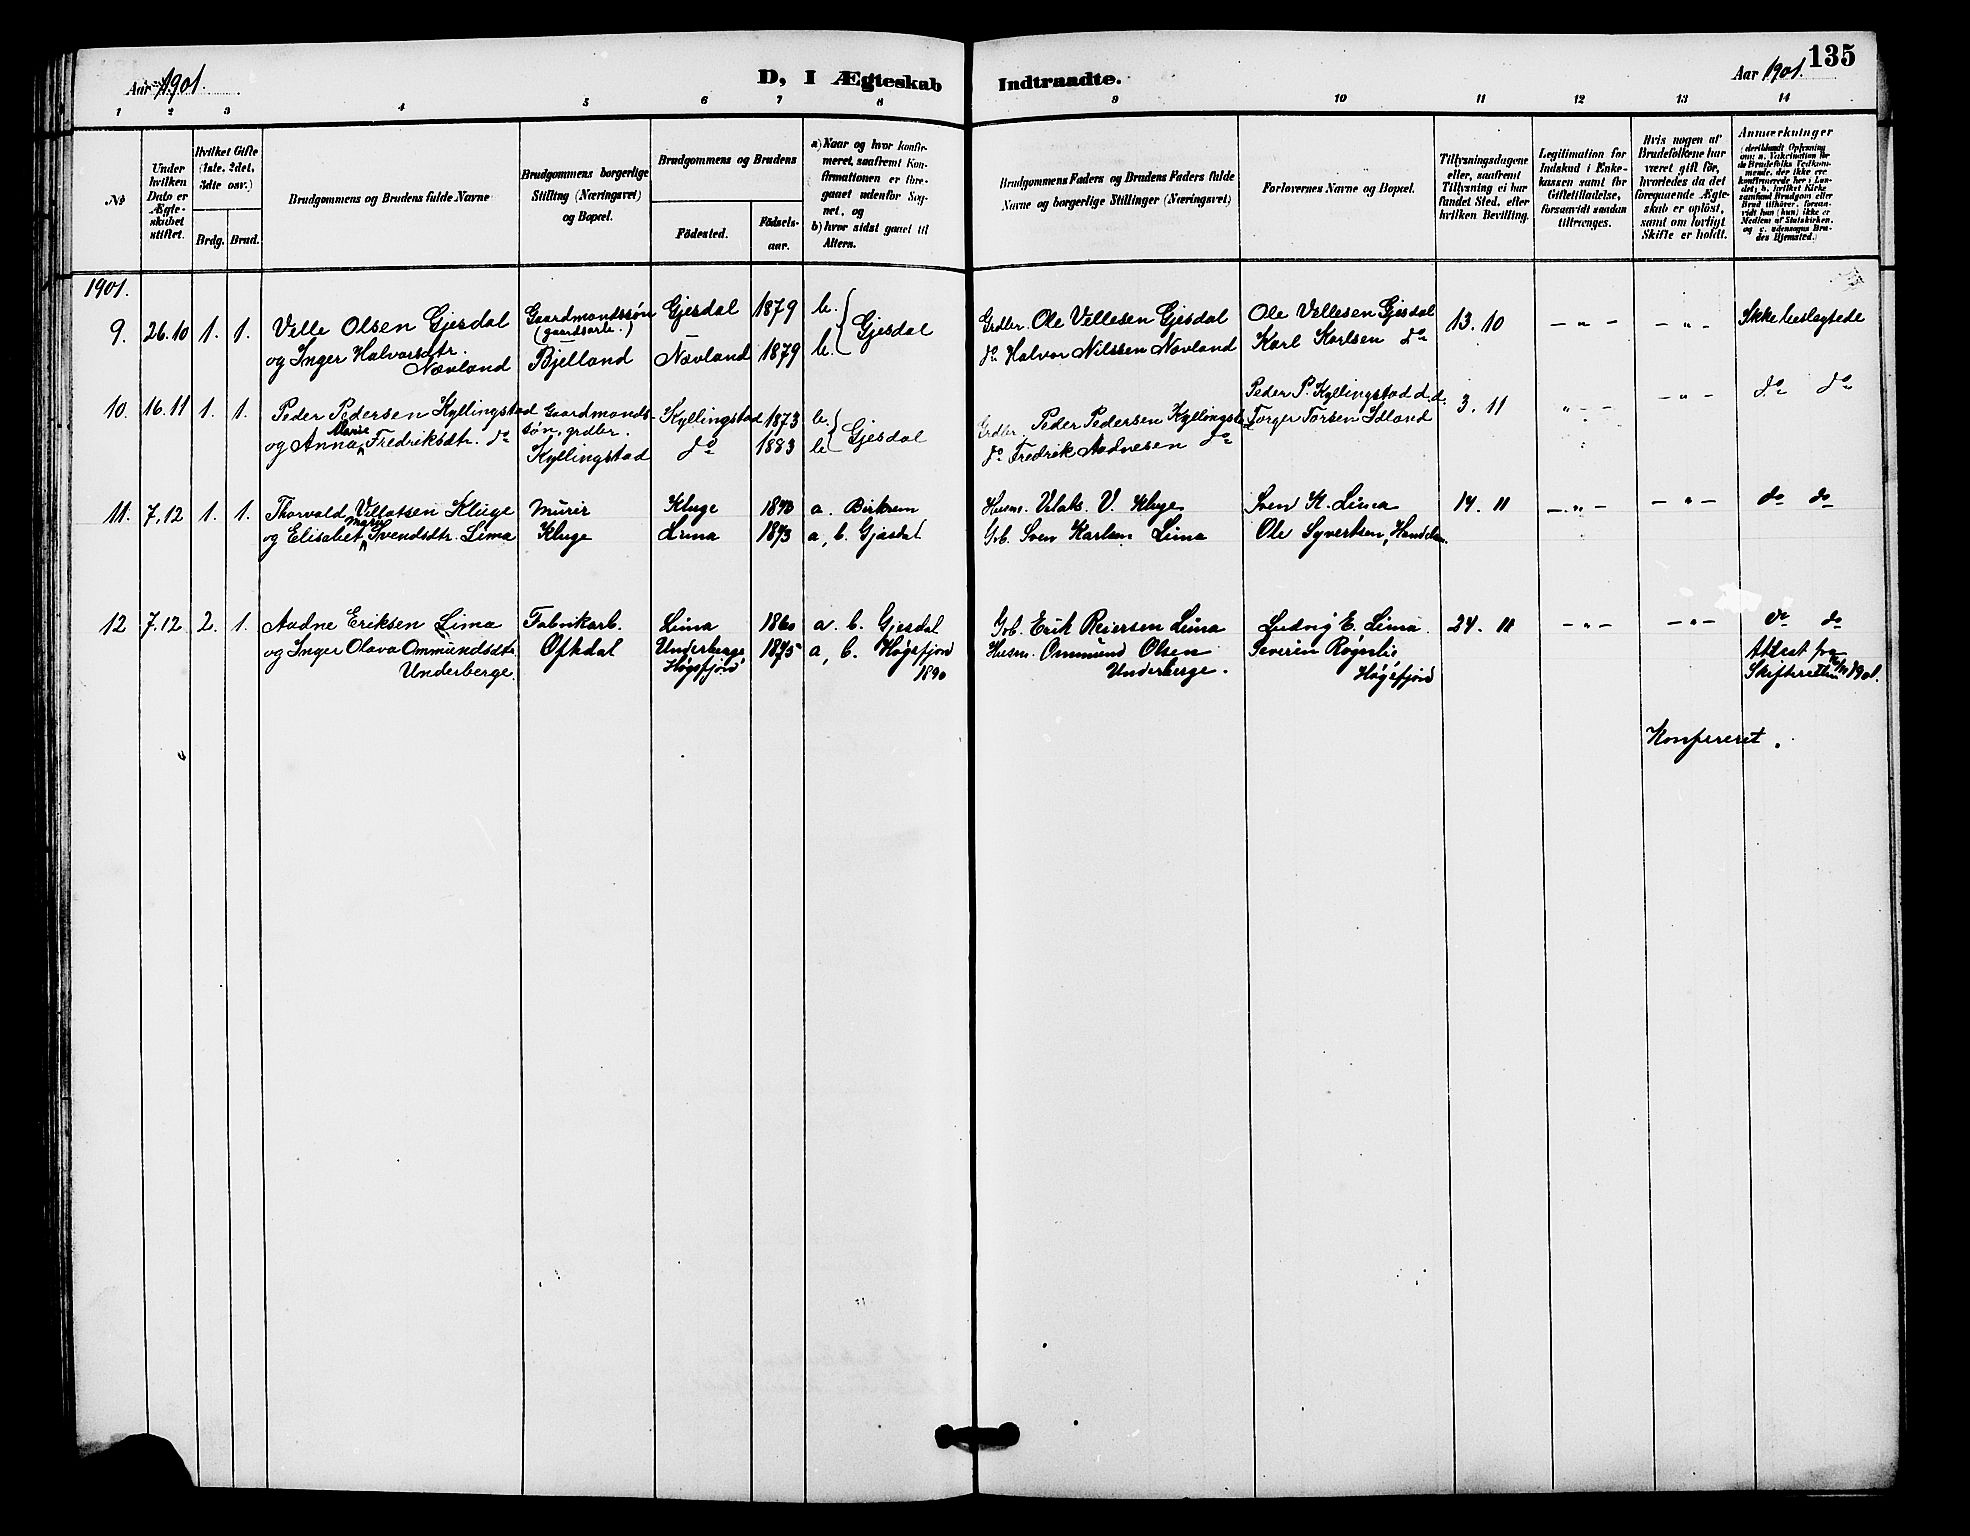 135
Aar 1901.
D, I Ægteskab
Indtraadte.
Aar 1901.
1 2 3 4 5 6 7 8 9 10 11 12 13 14
No
Under hvilken Dato er Ægteskabet stiftet.
Hvilket Gifte (1ste, 2det, 3dte osv.)
Brdg. Brud.
Brudgommens og Brudens fulde Navne
Brudgommens borgerlige Stilling (Næringsvei) og Bopæl.
Brudgommens og Brudens
Födested.
Födselsaar.
a) Naar og hvor konfirmeret, saafremt Konfirmationen er foregaaet udenfor Sognet, og
b) hvor sidst gaaet til Alters.
Brudgommens Faders og Brudens Faders fulde Navne og borgerlige Stillinger (Næringsvei)
Forlovernes Navne og Bopæl.
Tillysningsdagene eller, saafremt Tillysning ei har fundet Sted, efter hvilken Bevilling.
Legitimation for Indskud i Enkekassen samt for Giftetilladelse, forsaavidt saadan tiltrænges.
Hvis nogen af Brudefolkene har været gift för, hvorledes da det foregaaende Ægteskab er oplöst, samt om lovligt Skifte er holdt.
Anmærkninger
1901.
9. 26.10 1. 1. Velle Olsen Gjesdal Gaardmandssön Gjesdal 1879 b. Gjesdal Grdbr. Ole Vellesen Gjesdal Ole Vellesen Gjesdal 13. 10 – „ – – „ – Ikke beslegtede
(gaardsarb.)
og Inger Halvorsdtr. Nævland Bjelland Nævland 1879 b. do Halvor Nilssen Nævland Karl Karlsen do
10. 16.11 1. 1. Peder Pedersen Kyllingstad Gaardmandssön, grdbr. Kyllingstad 1873 b. Gjesdal Grdbr. Peder Pedersen Kyllingst. Peder P. Kyllingstad 3. 11 „ – – – „ – do do
og Anna Marie Fredriksdtr. do Kyllingstad do 1883 b. do Fredrik Aadnesen do Torger Torsen Idland
11. 7.12 1. 1. Thorvald Villatsen Kluge Murer Kluge 1873 a. Birkrem Husm. V. Kluge Sven K. Lima 14. 11 – „ – – „ – do do
og Elisabet Marie Svendsdtr. Lima Kluge Lima 1873 a, b. Gjesdal Grb. Sven Karlsen Lima Ole Syvertsen, Handelsm.
12 7.12 2. 1. Aadne Eriksen Lima Fabrikarb. Lima 1860 a. b. Gjesdal Grb. Erik Reiersen Lima Ludvig E. Lima. 24. 11 – „ – – „ – do do
og Inger Olava Ommundsdtr. Underberge. Oftedal Underberge Høgsfjord 1875 a, b. Høgsfjord 1890 Husm. Ommund Olsen Underberge. Severin Høgsfjord Attest fra Skifteretten 1901.
Konfereret.